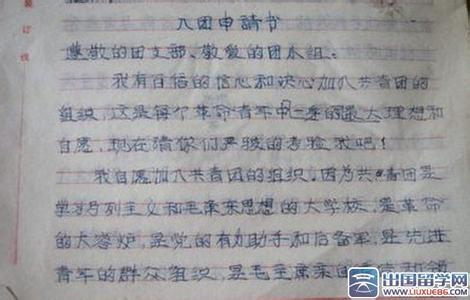 装订线
入团申請书
尊敬的团支部、敬爱的团小組:
我有百倍的信心和决心加入共青团的
组织,这是每个革命青年中的最大理想和
自愿,现在請你们严峻的考验我吧!
我自愿加入共青团的组织,因为共青团是
学习马列主义和毛泽东思想的大学校,是革命
的大容炉,是党的有力助手和后备军,是先进
青年的群众组织,是毛主席亲
出国留学网
www.liuxue86.com